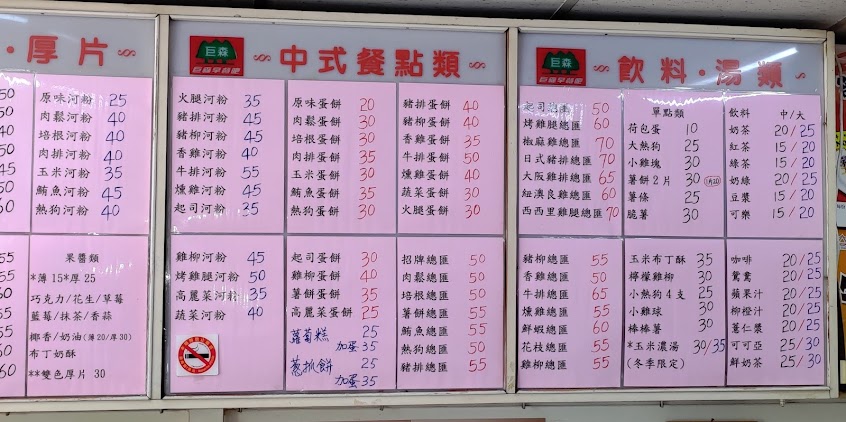 ·厚片
巨森
巨森早餐吧
中式餐點類
巨森
巨森早餐吧
飲料·湯類
50
50
40
50
45
50
50
原味河粉 25
肉鬆河粉 40
培根河粉 40
肉排河粉 40
玉米河粉 35
鮪魚河粉 45
熱狗河粉 40
55
55
60
55
60
果醬類
*薄15*厚25
巧克力/花生/草莓
藍莓/抹茶/香蒜
椰香/奶油(薄20/厚30)
布丁奶酥
**雙色厚片 30
火腿河粉 35
豬排河粉 45
豬柳河粉 45
香雞河粉 40
牛排河粉 55
燻雞河粉 45
起司河粉 35
雞柳河粉 45
烤雞腿河粉 50
高麗菜河粉 35
蔬菜河粉 40
原味蛋餅 20
肉鬆蛋餅 30
培根蛋餅 30
肉排蛋餅 35
玉米蛋餅 30
鮪魚蛋餅 35
熱狗蛋餅 30
起司蛋餅 30
雞柳蛋餅 40
薯餅蛋餅 35
高麗菜蛋餅 25
蘿蔔糕 25
加蛋35
蔥抓餅 25
加蛋35
豬排蛋餅 40
豬柳蛋餅 40
香雞蛋餅 35
牛排蛋餅 50
燻雞蛋餅 40
蔬菜蛋餅 30
火腿蛋餅 30
招牌總匯 50
肉鬆總匯 50
培根總匯 50
薯餅總匯 55
鮪魚總匯 55
熱狗總匯 50
豬排總匯 55
起司總匯 50
烤雞腿總匯 60
椒麻雞總匯 70
日式豬排總匯 70
大阪雞排總匯 65
紐澳良雞總匯 60
西西里雞腿總匯 70
豬柳總匯 55
香雞總匯 50
牛排總匯 65
燻雞總匯 55
鮮蝦總匯 60
花枝總匯 55
雞柳總匯 55
單點類
荷包蛋 10
大熱狗 25
小雞塊 30
薯餅2片 30
薯條 25
脆薯 30
玉米布丁酥 35
檸檬雞柳 30
小熱狗4支 25
小雞球 30
棒棒腿 30
*玉米濃湯 30/35
(冬季限定)
飲料 中/大
奶茶 20/25
紅茶 15/20
綠茶 15/20
奶綠 20/25
豆漿 15/20
可樂 15/20
咖啡 20/25
鴛鴦 20/25
蘋果汁 20/25
柳橙汁 20/25
薏仁漿 20/25
可可亞 25/30
鮮奶茶 25/30